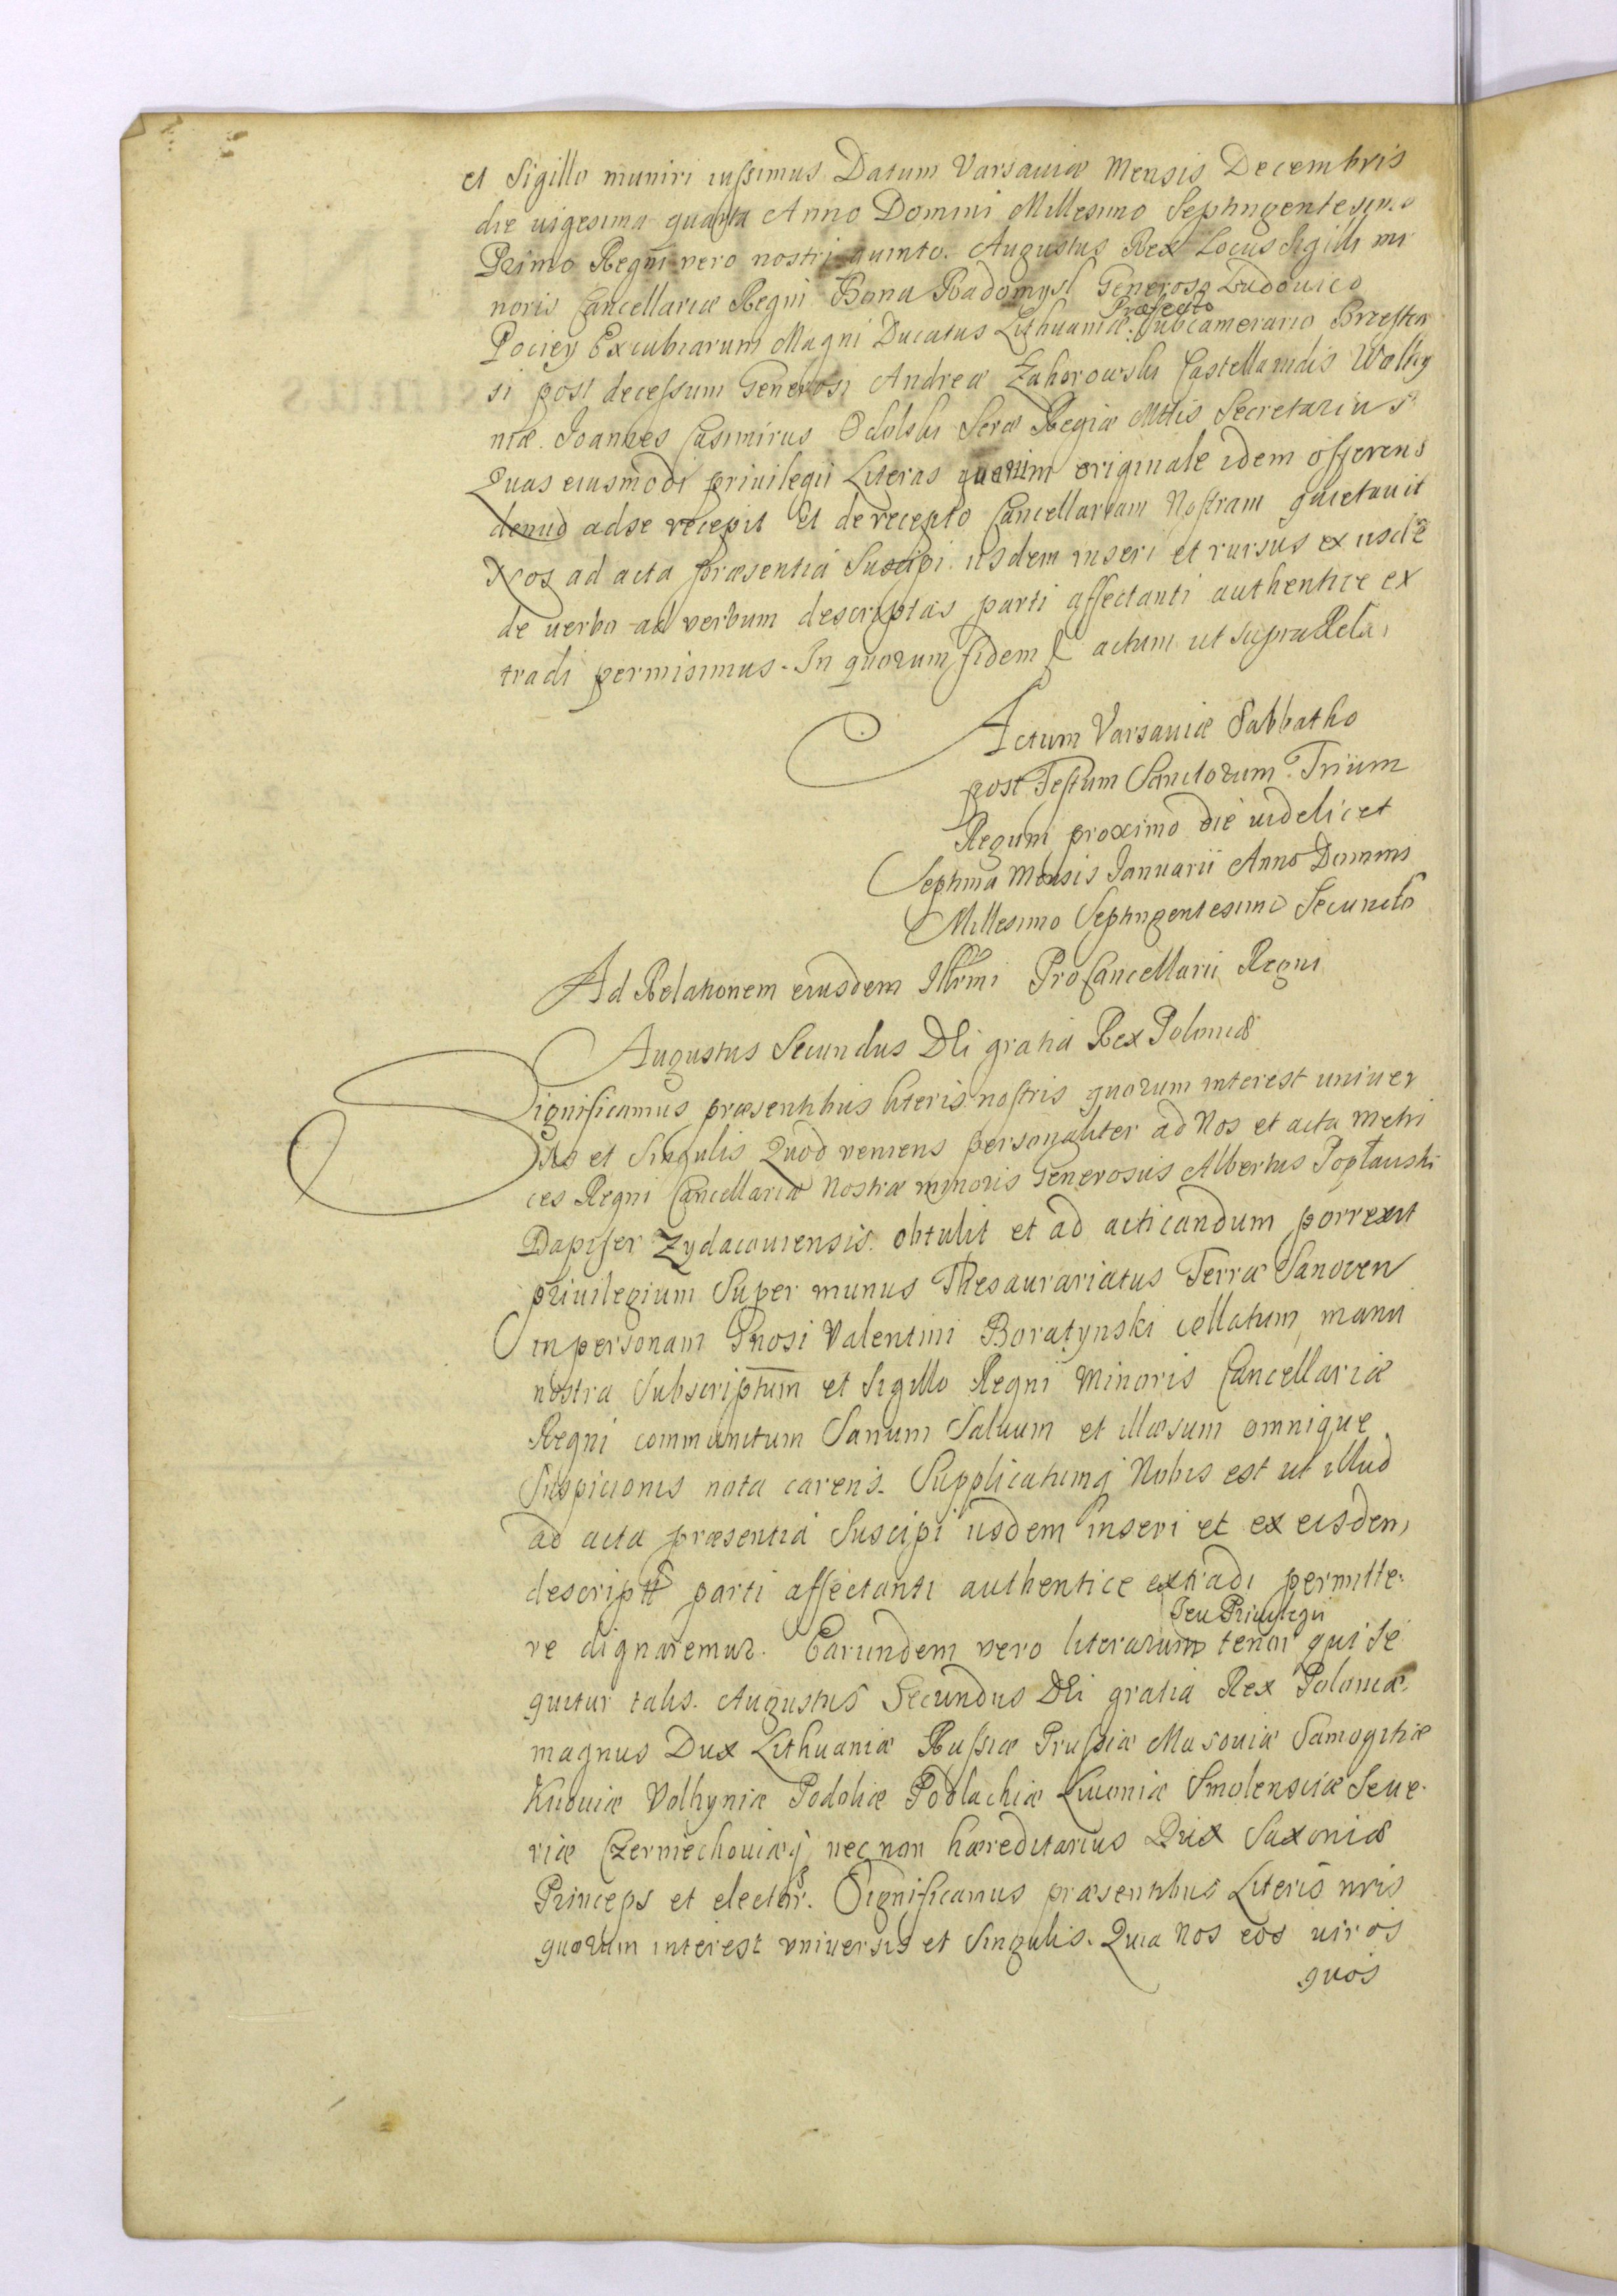 et Sigillo muniri iussimus Datum Varsauiæ Mensis Decembris
die uigesima quarta Anno Domini Millesimo Septingentesimo
Primo Regni vero nostri quinto. Augustus Rex Locus Sigilli mi
noris Cancellariæ Regni Bona Radomysl Generoso Ludouico
Præfecto
Pociey Excubiarum Magni Ducatus Lithuaniæ. Subcamerario Brzesten
si post decessum Generosi Andreæ Zahorowski Castellanidis Wolhy
niæ. Joannes Casimirus Odolski Seræ Regiæ Mttis Secretarius
Quas eiusmodi priuilegii Literas quarum originale idem offerens
denuo ad se recepit Et de recepto Cancellariam Nostram quietauit
Nos ad acta præsentia Suscipi iisdem inseri et rursus ex iisdē
de uerbo ad verbum descriptas parti affectanti authentice ex
tradi permisimus. In quorum fidem & actum ut supra Rela
Actum Varsauiæ Sabbatho
post Festum Sanctorum Trium
Regum proximo die uidelicet
Septima Mensis Januarii Anno Domini
Millesimo Septingentesimo Secundo
Ad Relationem eiusdem Illrmi ProCancellarii Regni
Augustus Secundus DEi gratia Rex Poloniæ
Significamus præsentibus literis nostris quorum interest uniuer
sis et Singulis Quod veniens personaliter ad Nos et acta Metri
ces Regni Cancellariæ Nostræ minoris Generosus Albertus Popławski
Dapifer Zydacouiensis. obtulit et ad acticandum porrexit
priuilegium Super munus Thesaurariatus Terræ Sanocen
in personam Gnosi Valentini Boratynski collatum, manu
nostra Subscriptum et Sigillo Regni Minoris Cancellariæ
Regni communitum Sanum Saluum et illæsum omnique
Suspicionis nota carens. Supplicatumq Nobis est ut illud
ad acta præsentia Suscipi iisdem inseri et ex eisdem
descriptū parti affectanti authentice extradi permitte
Seu Priuilegii
re dignaremur. Earundem vero literarum tenor qui se
quitur talis. Augustus Secundus DEi gratia Rex Poloniæ
magnus Dux Lithuaniæ Russiæ Prussiæ Masouiæ Samogitiæ
Kiiouiæ Volhyniæ Podoliæ Podlachiæ Liuoniæ Smolensciæ Seue
riæ Czerniechouiæq nec non hæreditarius Dux Saxoniæ
Princeps et elector. Significamus præsentibus Literis nris
quorum interest vniuersis et Singulis. Quia Nos eos uiros
quos